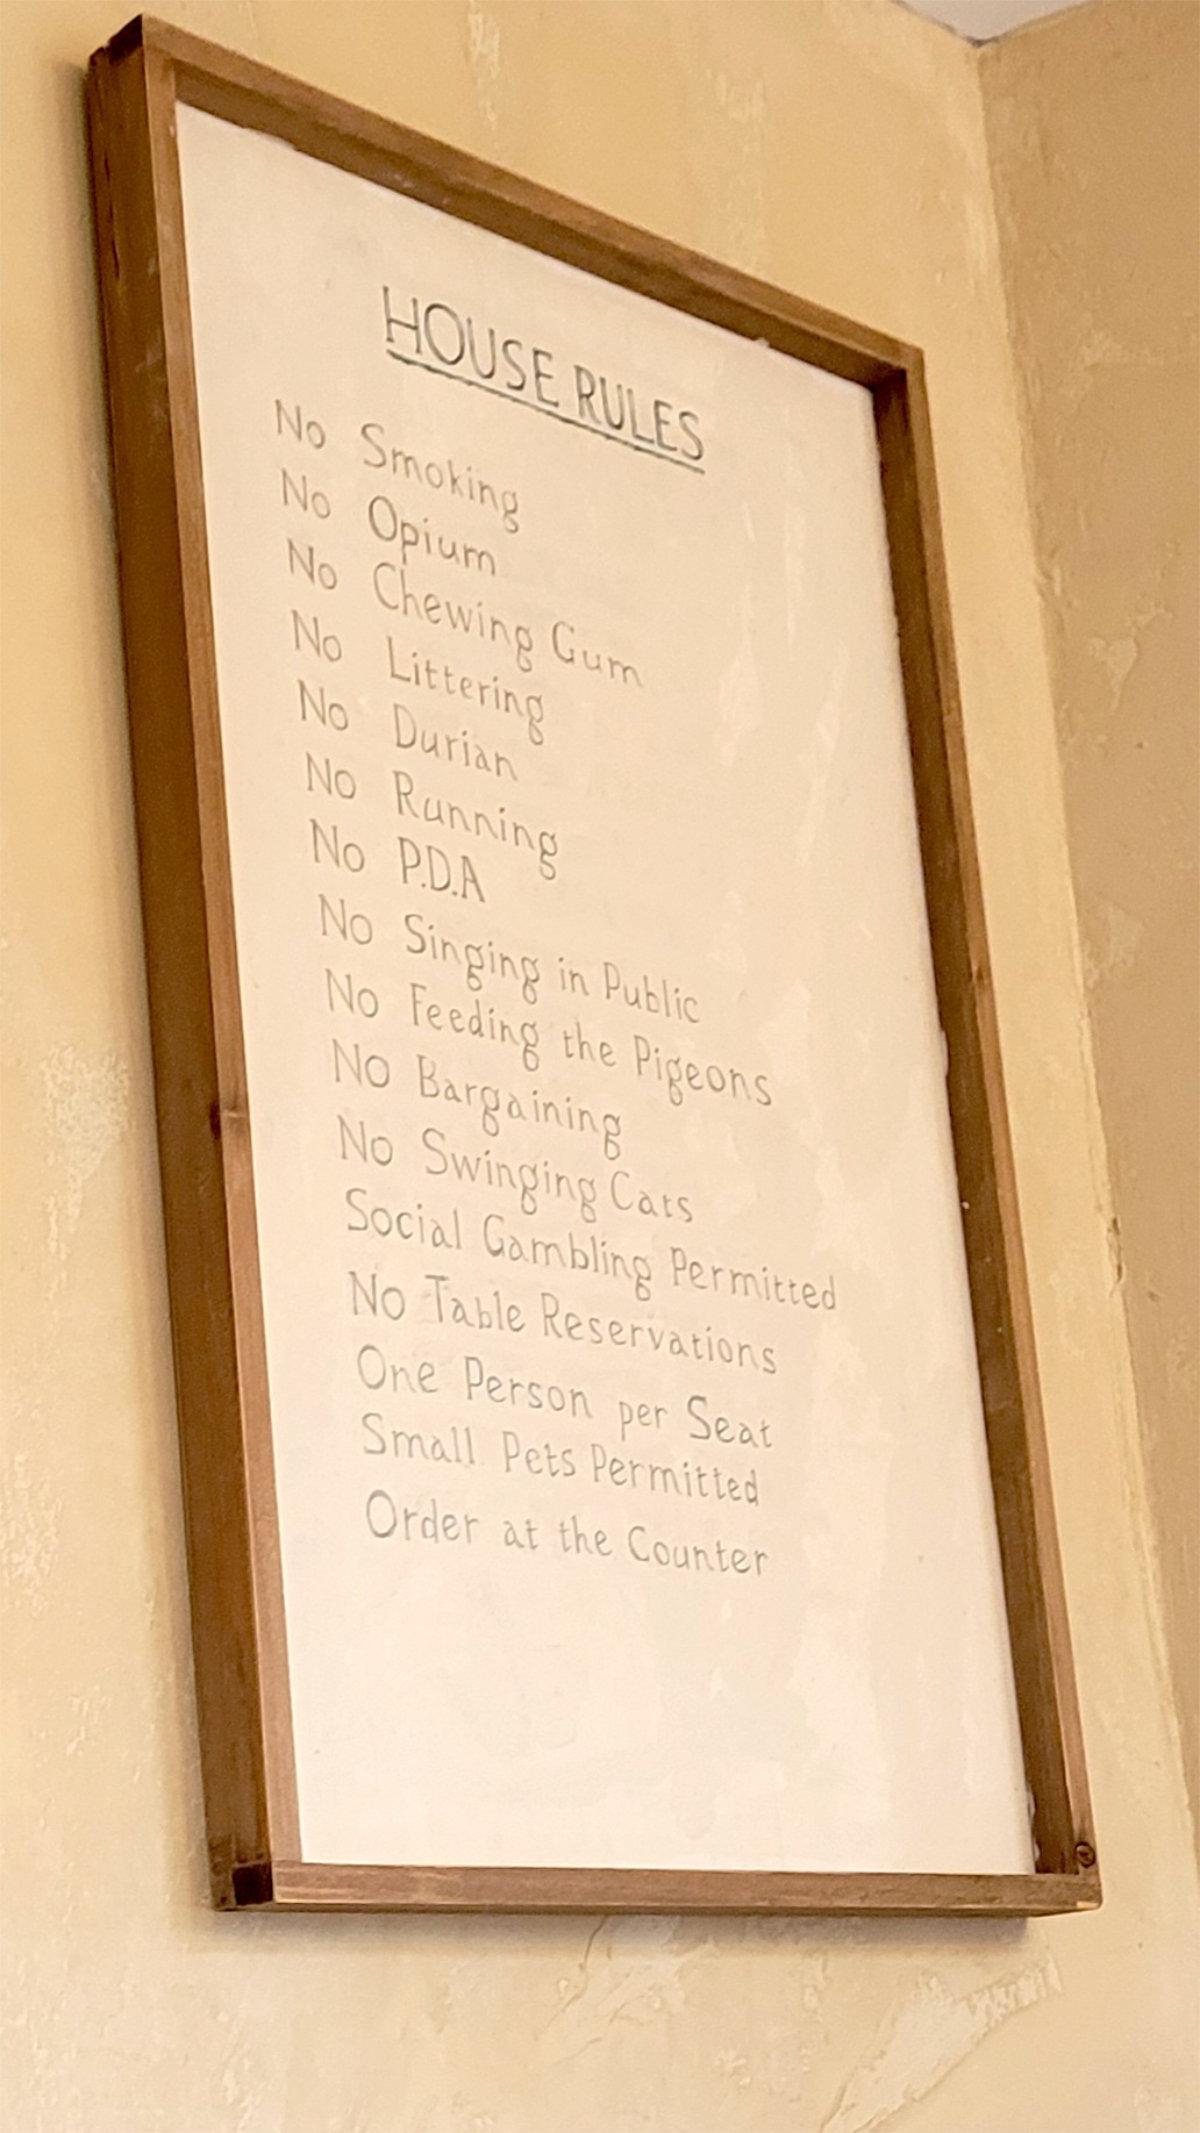 HOUSE RULES
No Smoking
No Opium
No Chewing Gum
No Littering
No Durian
No Running
No P.D.A
No Singing in Public
No Feeding the Pigeons
No Bargaining
No Swinging Cats
Social Gambling Permitted
No Table Reservations
One Person per Seat
Small Pets Permitted
Order at the Counter